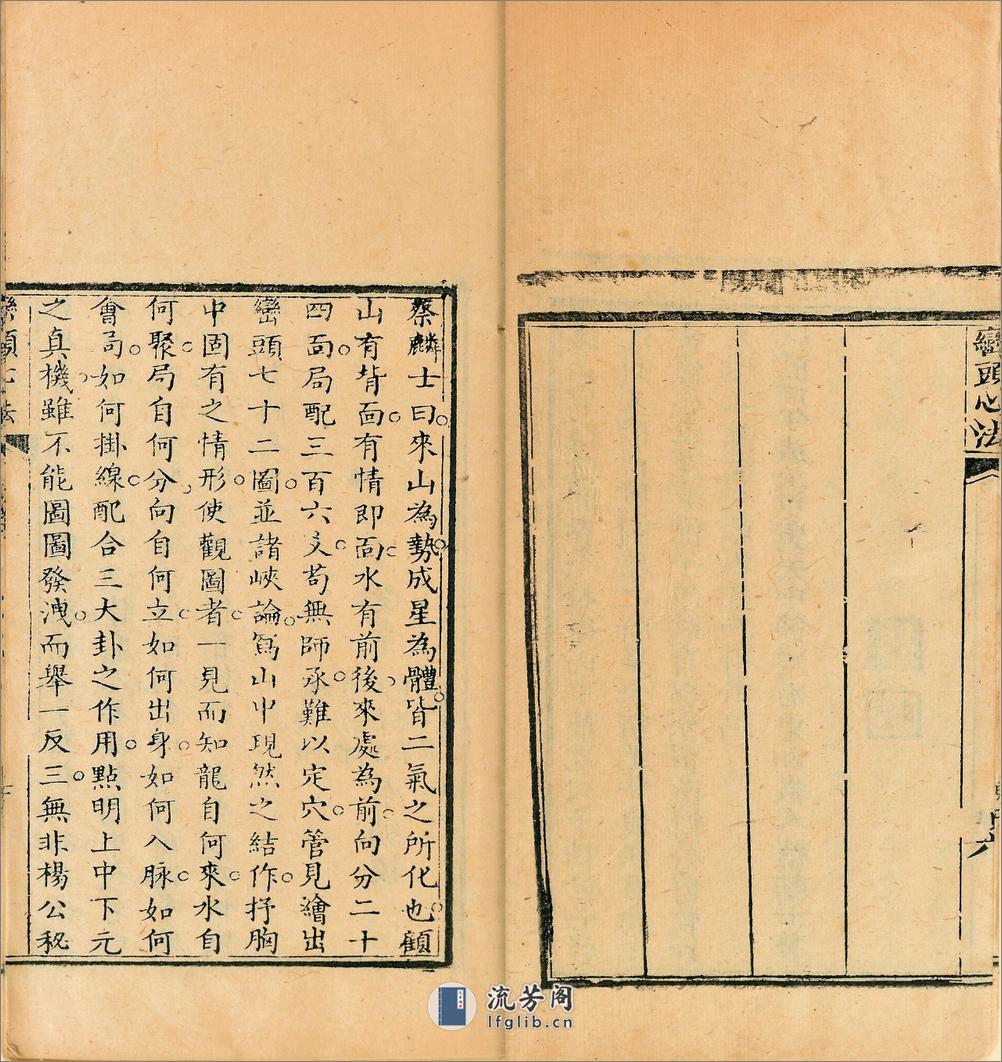 巒頭心法
蔡麟士曰來山為勢成星為體皆二氣之所化也顧
山有背面有情即面水有前後來處為前向分二十
四面局配三百六爻苟無師承難以定穴管見繪出
巒頭七十二圖並諸峽論寫山中現然之結作抒胸
中固有之情形使觀圖者一見而知龍自何來水自
何聚局自何分向自何立如何出身如何入脉如何
會局如何掛線配合三大卦之作用點明上中下元
之真機雖不能圖圖發洩而舉一反三無非楊公秘
流芳阁
lfglib.cn